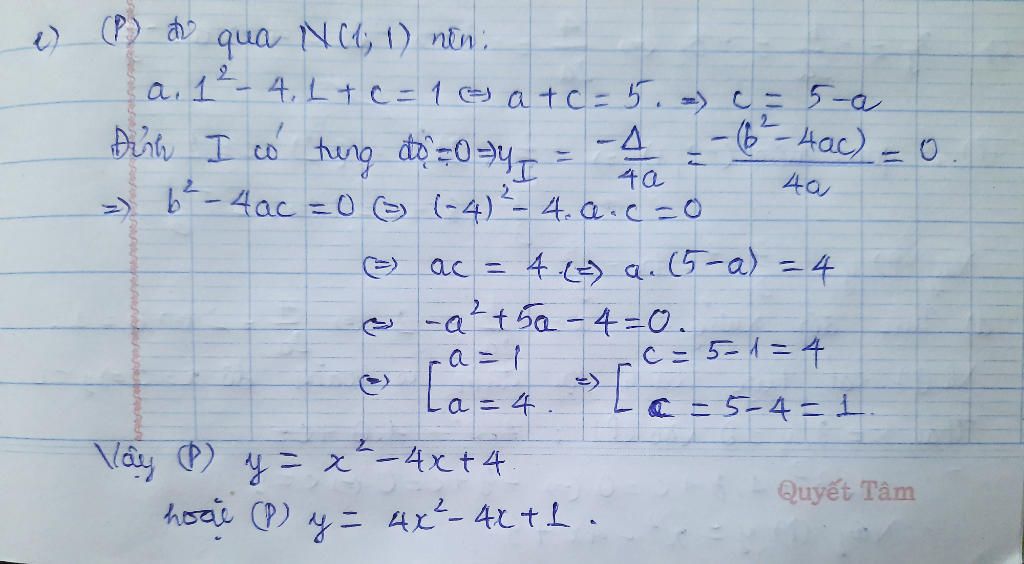 e) (P) đi qua N(1; 1) nên:
a.1² - 4.1 + c = 1 ⇔ a + c = 5. ⇒ c = 5-a
Đỉnh I có tung độ = 0 ⇒ y_I = -Δ/4a = -(b² - 4ac)/4a = 0.
⇒ b² - 4ac = 0 ⇔ (-4)² - 4.a.c = 0
⇔ ac = 4 ⇔ a.(5-a) = 4
⇔ -a² + 5a - 4 = 0.
⇔ [ a = 1 ⇒ [ c = 5-1 = 4
a = 4. c = 5-4 = 1.
Vậy (P) y = x² - 4x + 4
Quyết Tâm
hoặc (P) y = 4x² - 4x + 1.